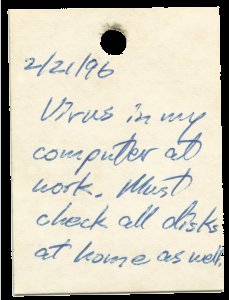 2/21/96
Virus in my
computer at
work. Must
check all disks
at home as well.